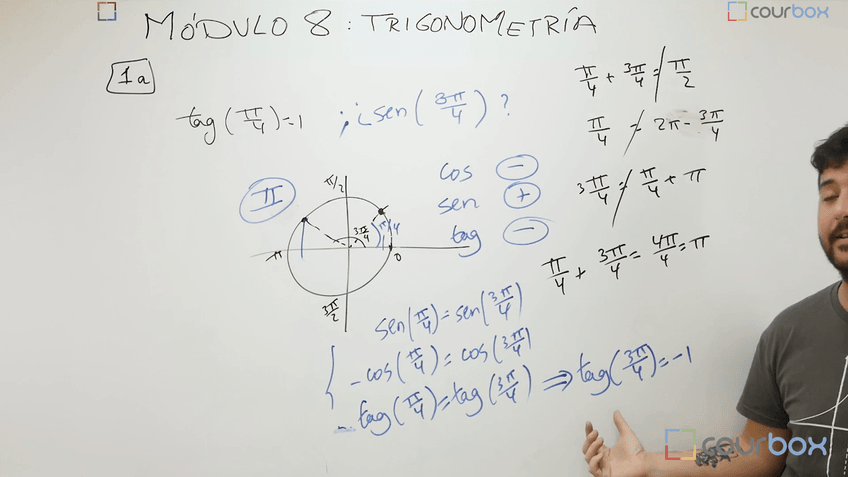 courbox
MÓDULO 8 : TRIGONOMETRÍA
1a
tag(π/4)=1 ; ¿sen(3π/4)?
π/4 + 3π/4 ≠ π/2
π/4 ≠ 2π - 3π/4
3π/4 ≠ π/4 + π
π/4 + 3π/4 = 4π/4 = π
II
π/2
3π/4
π/4
π
0
3π/2
cos −
sen +
tag −
sen(π/4)=sen(3π/4)
-cos(π/4)=cos(3π/4)
-tag(π/4)=tag(3π/4) ⇒ tag(3π/4)=-1
courbox